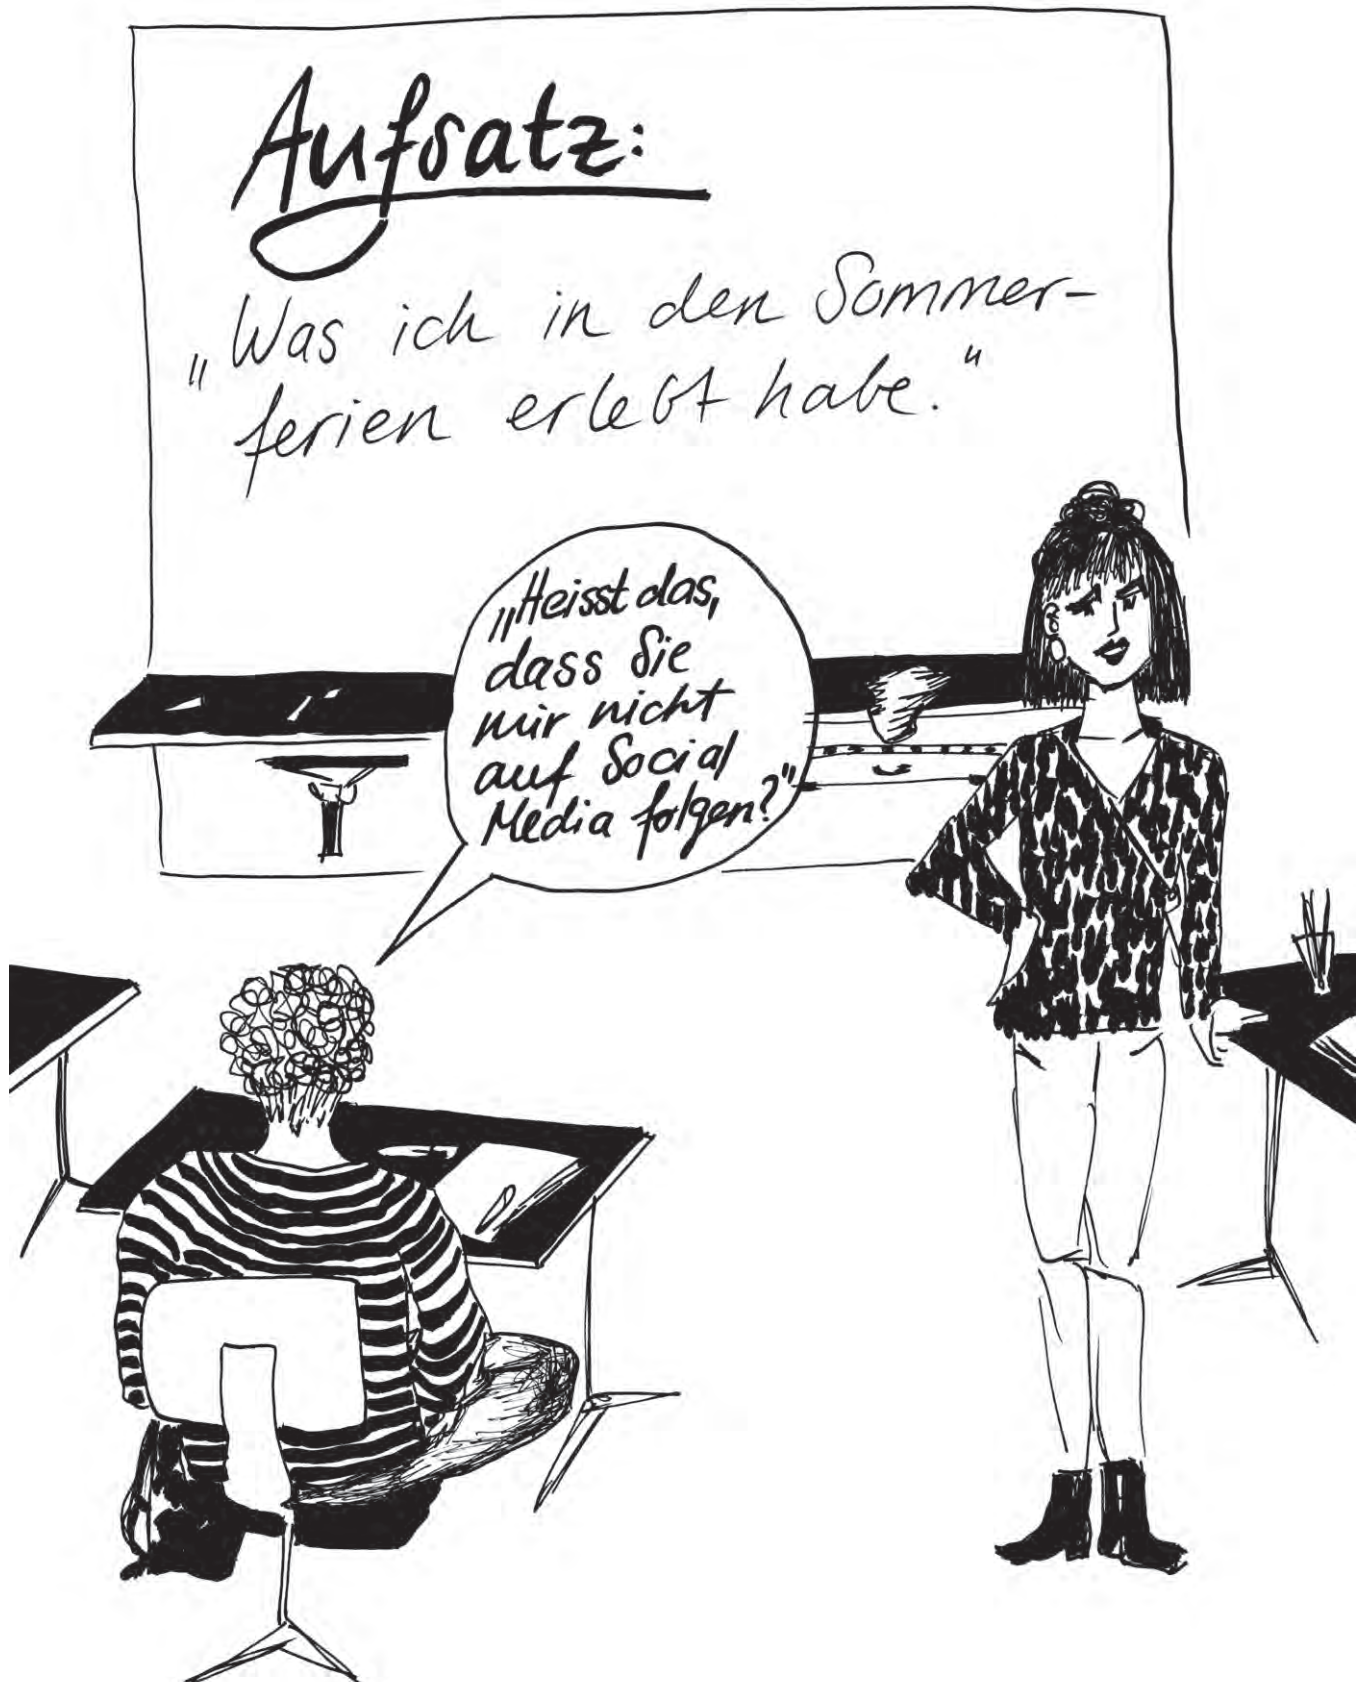 Aufsatz:
„Was ich in den Sommer-
ferien erlebt habe.“
„Heisst das,
dass Sie
mir nicht
auf Social
Media folgen?“